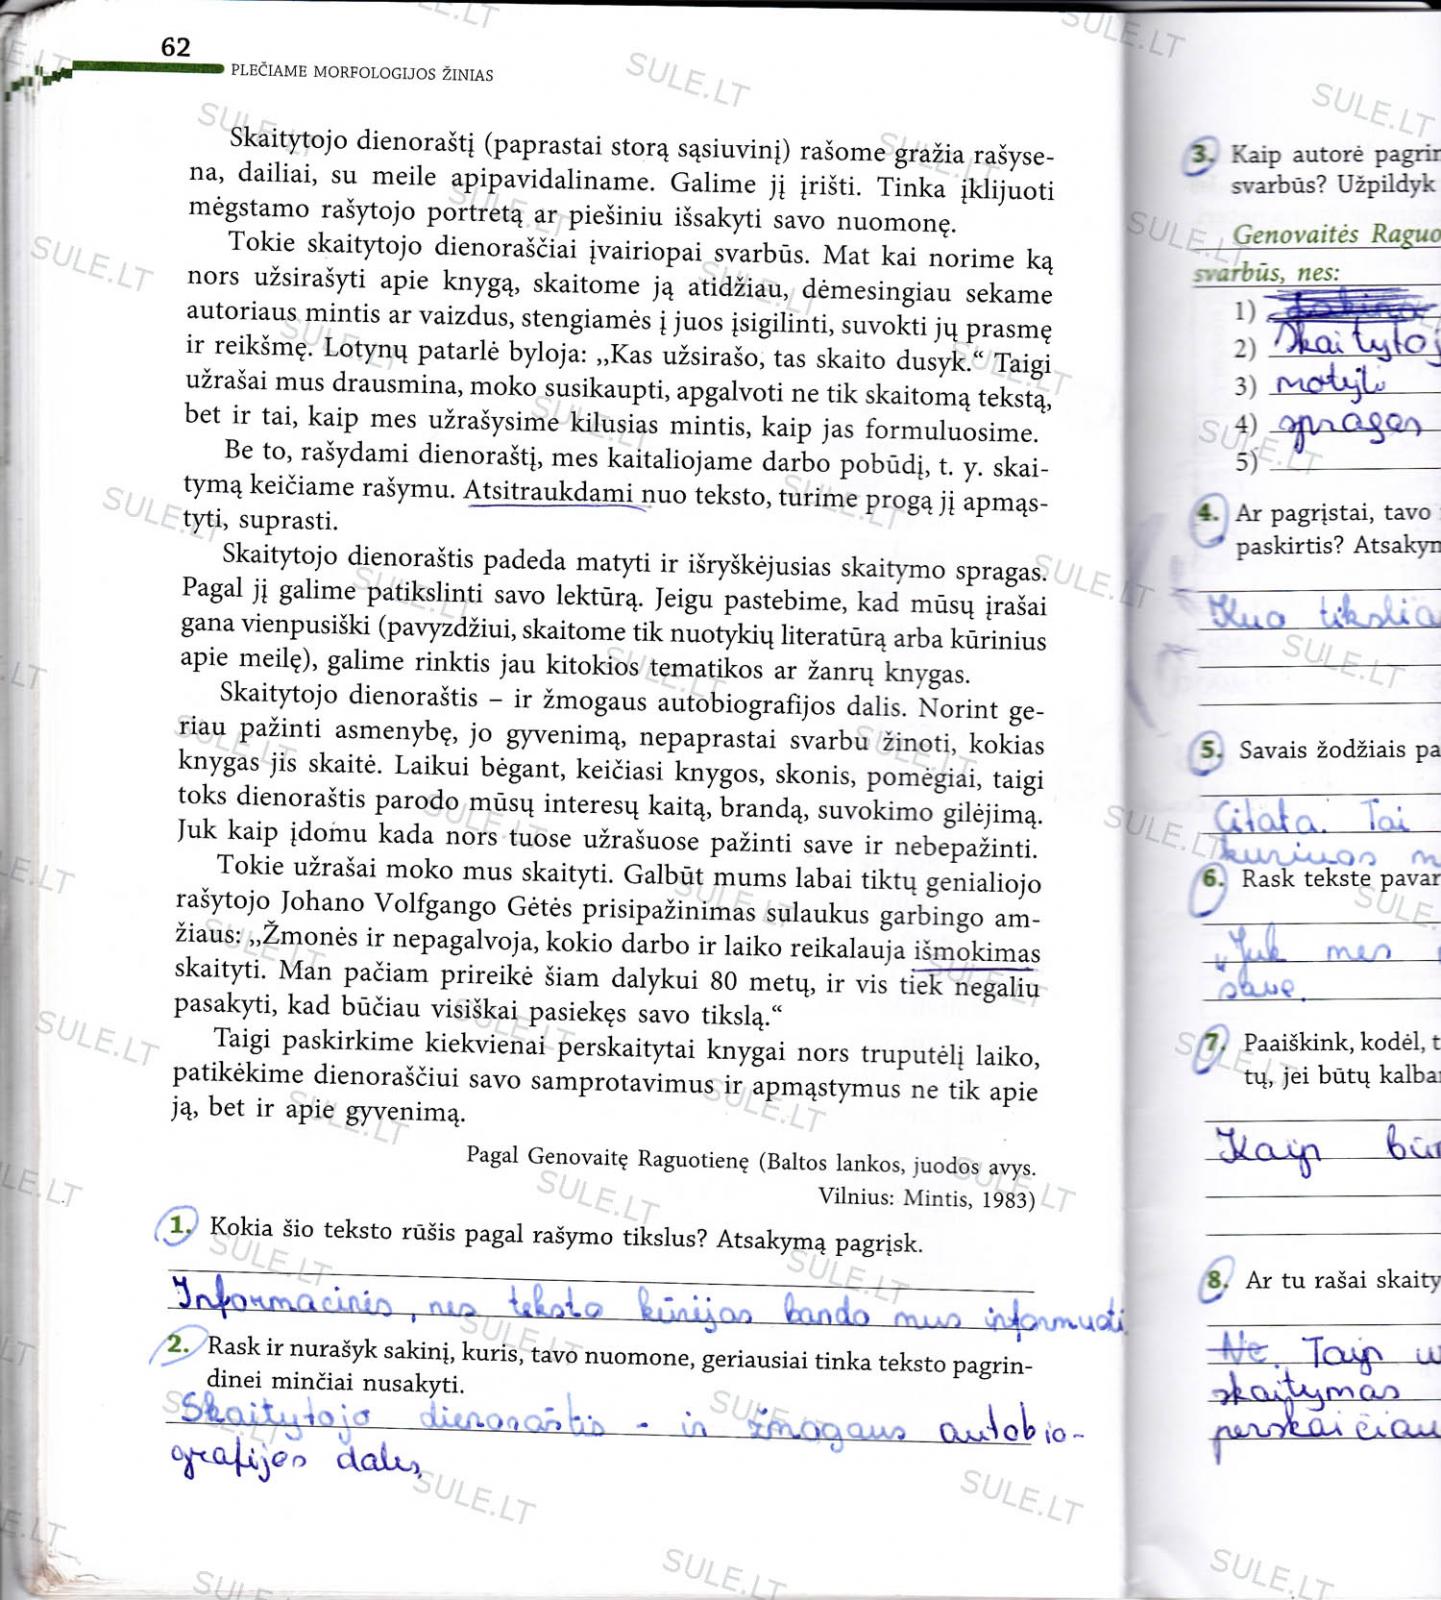 62
PLEČIAME MORFOLOGIJOS ŽINIAS
Skaitytojo dienoraštį (paprastai storą sąsiuvinį) rašome gražia rašyse-
na, dailiai, su meile apipavidaliname. Galime jį įrišti. Tinka įklijuoti
mėgstamo rašytojo portretą ar piešiniu išsakyti savo nuomonę.
Tokie skaitytojo dienoraščiai įvairiopai svarbūs. Mat kai norime ką
nors užsirašyti apie knygą, skaitome ją atidžiau, dėmesingiau sekame
autoriaus mintis ar vaizdus, stengiamės į juos įsigilinti, suvokti jų prasmę
ir reikšmę. Lotynų patarlė byloja: „Kas užsirašo, tas skaito dusyk.“ Taigi
užrašai mus drausmina, moko susikaupti, apgalvoti ne tik skaitomą tekstą,
bet ir tai, kaip mes užrašysime kilusias mintis, kaip jas formuluosime.
Be to, rašydami dienoraštį, mes kaitaliojame darbo pobūdį, t. y. skai-
tymą keičiame rašymu. Atsitraukdami nuo teksto, turime progą jį apmąs-
tyti, suprasti.
Skaitytojo dienoraštis padeda matyti ir išryškėjusias skaitymo spragas.
Pagal jį galime patikslinti savo lektūrą. Jeigu pastebime, kad mūsų įrašai
gana vienpusiški (pavyzdžiui, skaitome tik nuotykių literatūrą arba kūrinius
apie meilę), galime rinktis jau kitokios tematikos ar žanrų knygas.
Skaitytojo dienoraštis – ir žmogaus autobiografijos dalis. Norint ge-
riau pažinti asmenybę, jo gyvenimą, nepaprastai svarbu žinoti, kokias
knygas jis skaitė. Laikui bėgant, keičiasi knygos, skonis, pomėgiai, taigi
toks dienoraštis parodo mūsų interesų kaitą, brandą, suvokimo gilėjimą.
Juk kaip įdomu kada nors tuose užrašuose pažinti save ir nebepažinti.
Tokie užrašai moko mus skaityti. Galbūt mums labai tiktų genialiojo
rašytojo Johano Volfgango Gėtės prisipažinimas sulaukus garbingo am-
žiaus: „Žmonės ir nepagalvoja, kokio darbo ir laiko reikalauja išmokimas
skaityti. Man pačiam prireikė šiam dalykui 80 metų, ir vis tiek negaliu
pasakyti, kad būčiau visiškai pasiekęs savo tikslą.“
Taigi paskirkime kiekvienai perskaitytai knygai nors truputėlį laiko,
patikėkime dienoraščiui savo samprotavimus ir apmąstymus ne tik apie
ją, bet ir apie gyvenimą.
Pagal Genovaitę Raguotienę (Baltos lankos, juodos avys.
Vilnius: Mintis, 1983)
1. Kokia šio teksto rūšis pagal rašymo tikslus? Atsakymą pagrįsk.
Informacinis, nes teksto kūrėjas bando mus informuoti
2. Rask ir nurašyk sakinį, kuris, tavo nuomone, geriausiai tinka teksto pagrin-
dinei minčiai nusakyti.
Skaitytojo dienoraštis - ir žmogaus autobio-
grafijos dalis
3. Kaip autorė pagrin
svarbūs? Užpildyk
Genovaitės Raguo
svarbūs, nes:
1)
2) skaitytoj
3) matyti
4) spragas
5)
4. Ar pagrįstai, tavo
paskirtis? Atsakym
Kuo tikslia
5. Savais žodžiais pa
Citata. Tai
kuriuos
6. Rask tekste pavar
„Juk mes
save.
7. Paaiškink, kodėl, t
tų, jei būtų kalba
Kaip
8. Ar tu rašai skaity
Ne. Taip
skaitymas
perskaičiau
SULE.LT